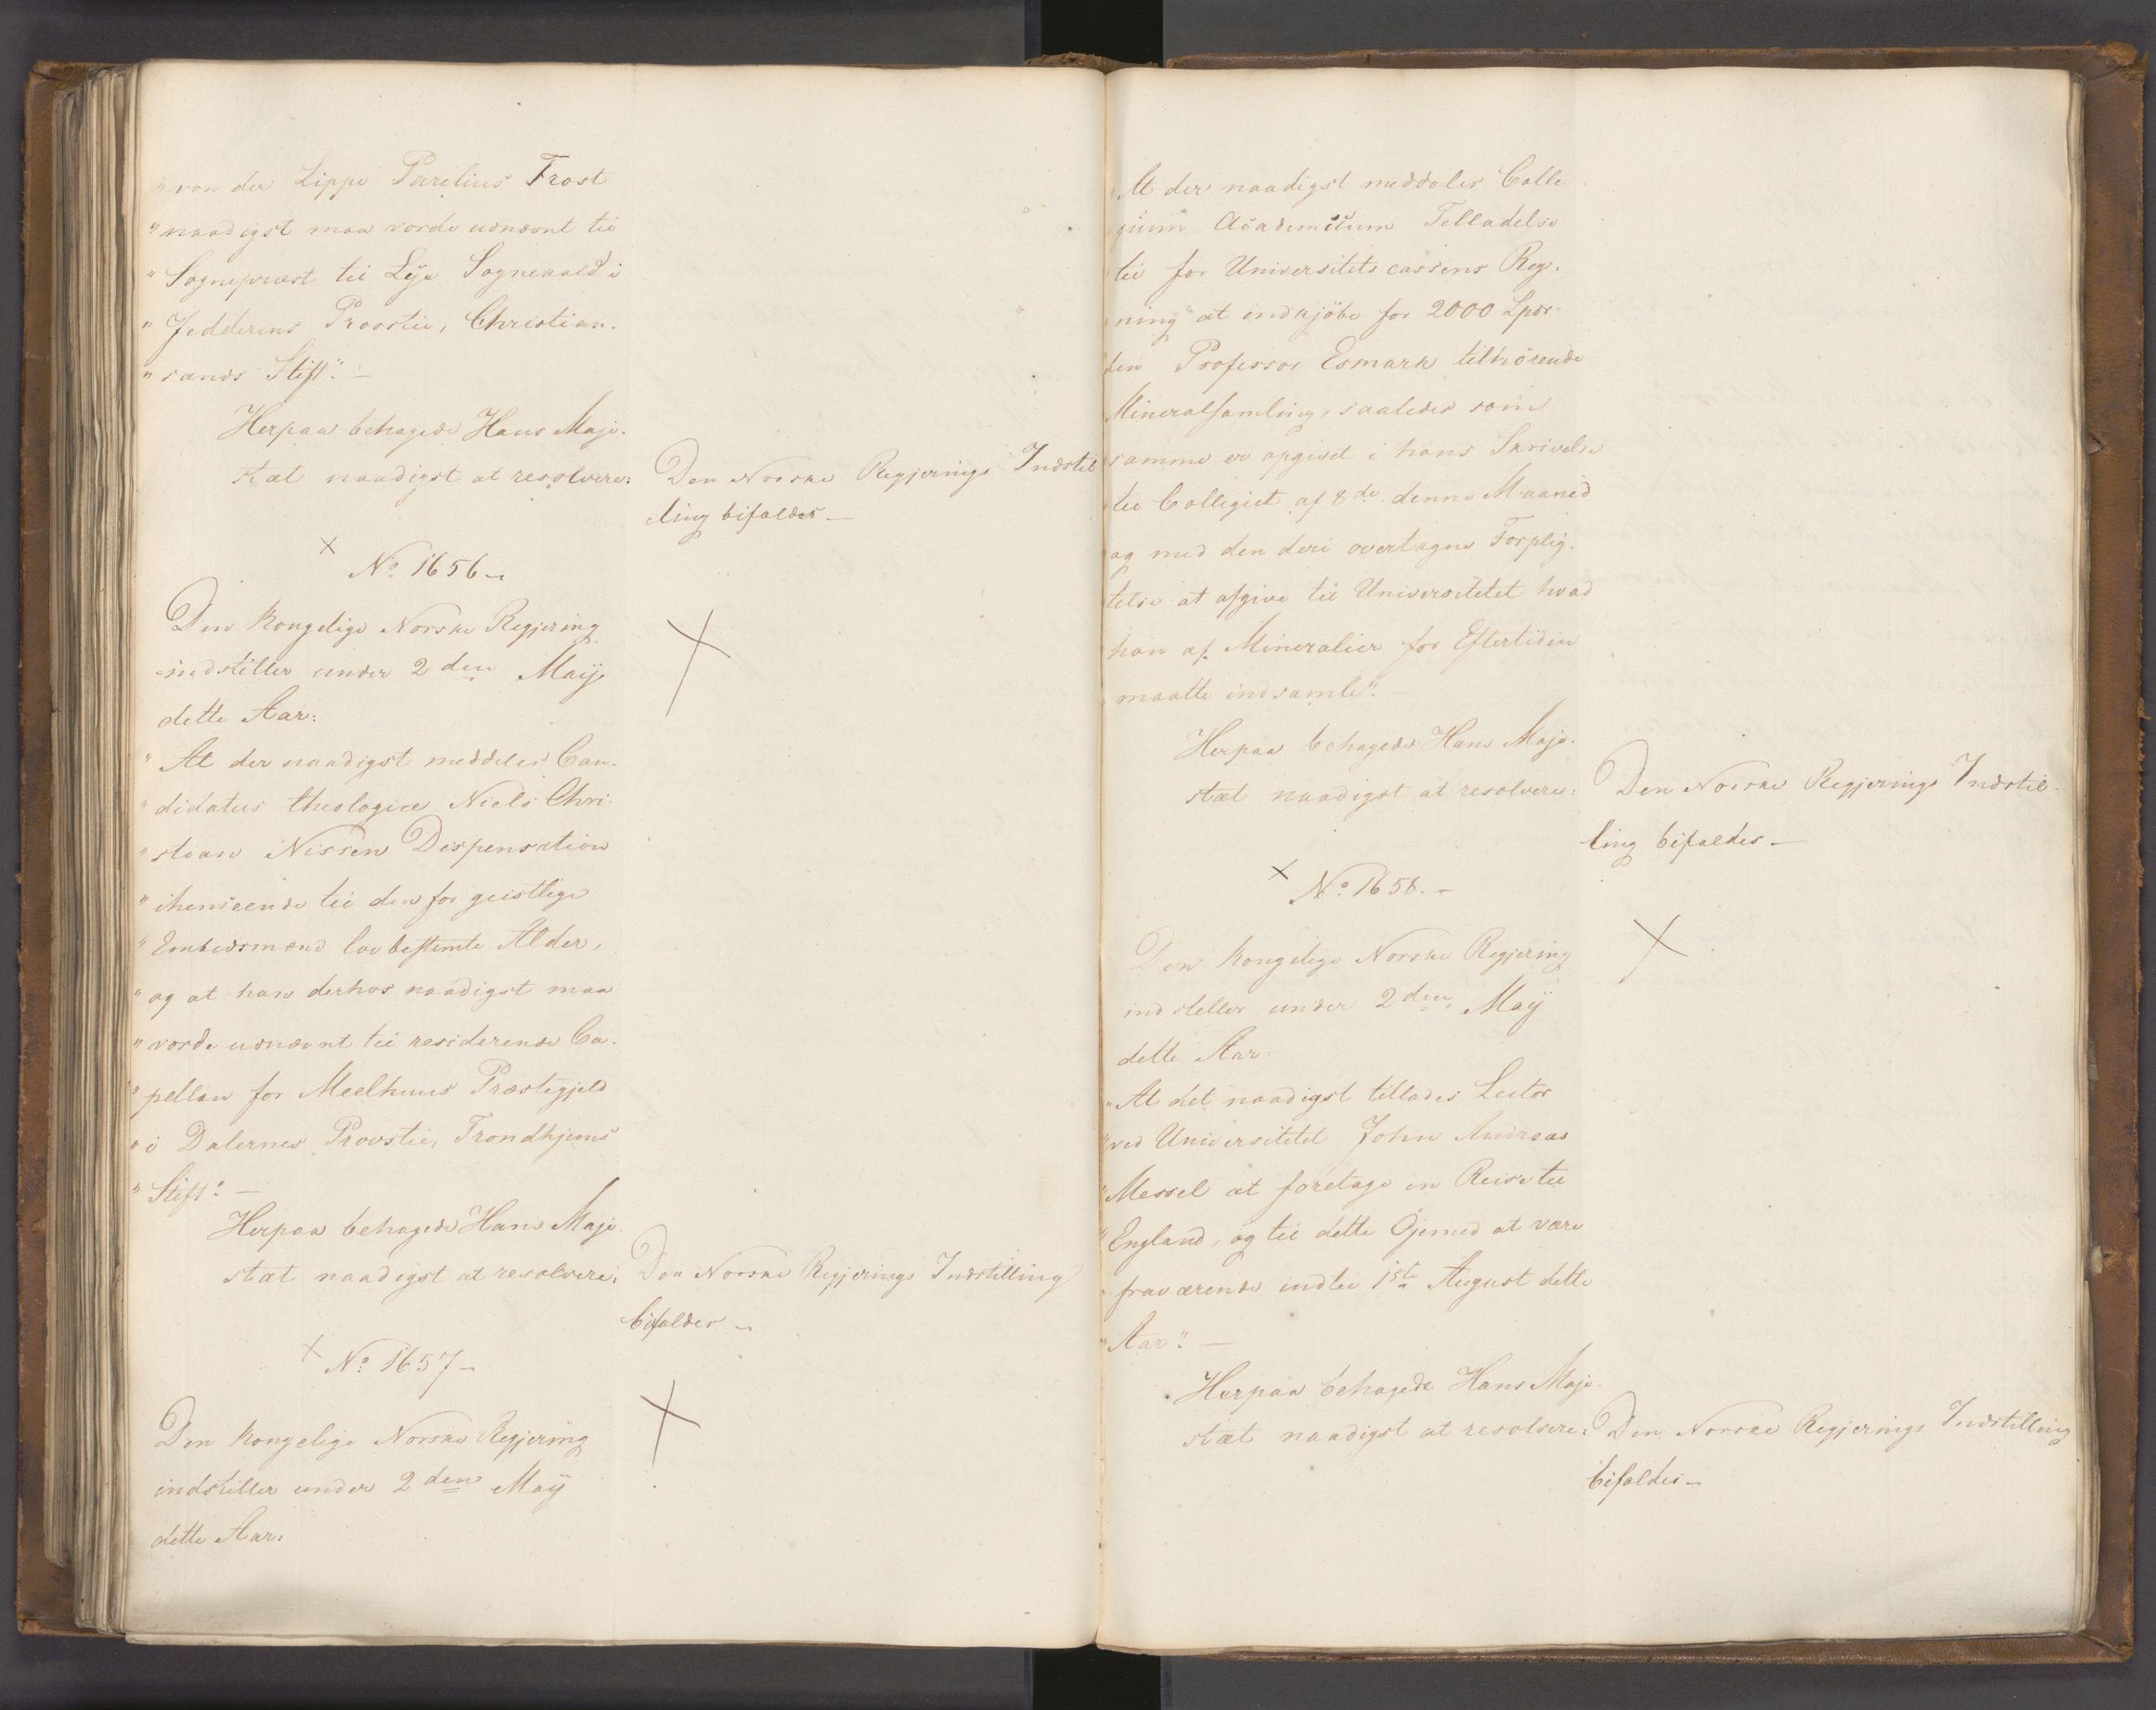 "von der Lippe Parelius Frost
"naadigst maa vorde udnævnt til
"Sognepræst til Lye Sognekald i
"Jedderens Provstie, Christian-
"sands Stift". —
Herpaa behagede Hans Maje-
stæt naadigst at resolvere:
Den Norske Regjerings Indstil
ling bifaldes —
No 1656 —
Den Kongelige Norske Regjering
indstiller under 2den Maij
dette Aar:
"At der naadigst meddeles Can-
"didatus theologiæ Niels Chri-
"stian Nissen Dispensation
"ihenseende til den for geistlige
"Embedsmænd lovbestemte Alder,
"og at han derhos naadigst maa
"vorde udnævnt til residerende Ca-
"pellan for Meelhuus Præstegjeld
"i Dalernes Provstie, Trondhjems
"Stift". —
Herpaa behagede Hans Maje-
stæt naadigst at resolvere:
Den Norske Regjerings Indstilling
bifaldes —
No 1657 —
Den Kongelige Norske Regjering
indstiller under 2den Maij
dette Aar:
"At der naadigst meddeles Colle
gium Academicum Tilladelse
til for Universitetscassens Reg-
ning at indkjöbe for 2000 Spdr.
den Professor Esmark tilhörende
Mineralsamling, saaledes som
samme er opgivet i hans Skrivelse
til Collegiet af 8de denne Maaned
og med den deri overtagne Forplig-
telse at afgive til Universitetet hvad
han af Mineralier for Eftertiden
maatte indsamle". —
Herpaa behagede Hans Maje-
stæt naadigst at resolvere:
Den Norske Regjerings Indstil-
ling bifaldes —
No 1658. —
Den Kongelige Norske Regjering
indstiller under 2den Maij
dette Aar:
"At det naadigst tillades Lector
"ved Universitetet John Andreas
"Messel at foretage en Reise til
"England, og til dette Öjemed at være
"fraværende indtil 1ste August dette
"Aar". —
Herpaa behagede Hans Maje-
stæt naadigst at resolvere:
Den Norske Regjerings Indstilling
bifaldes —